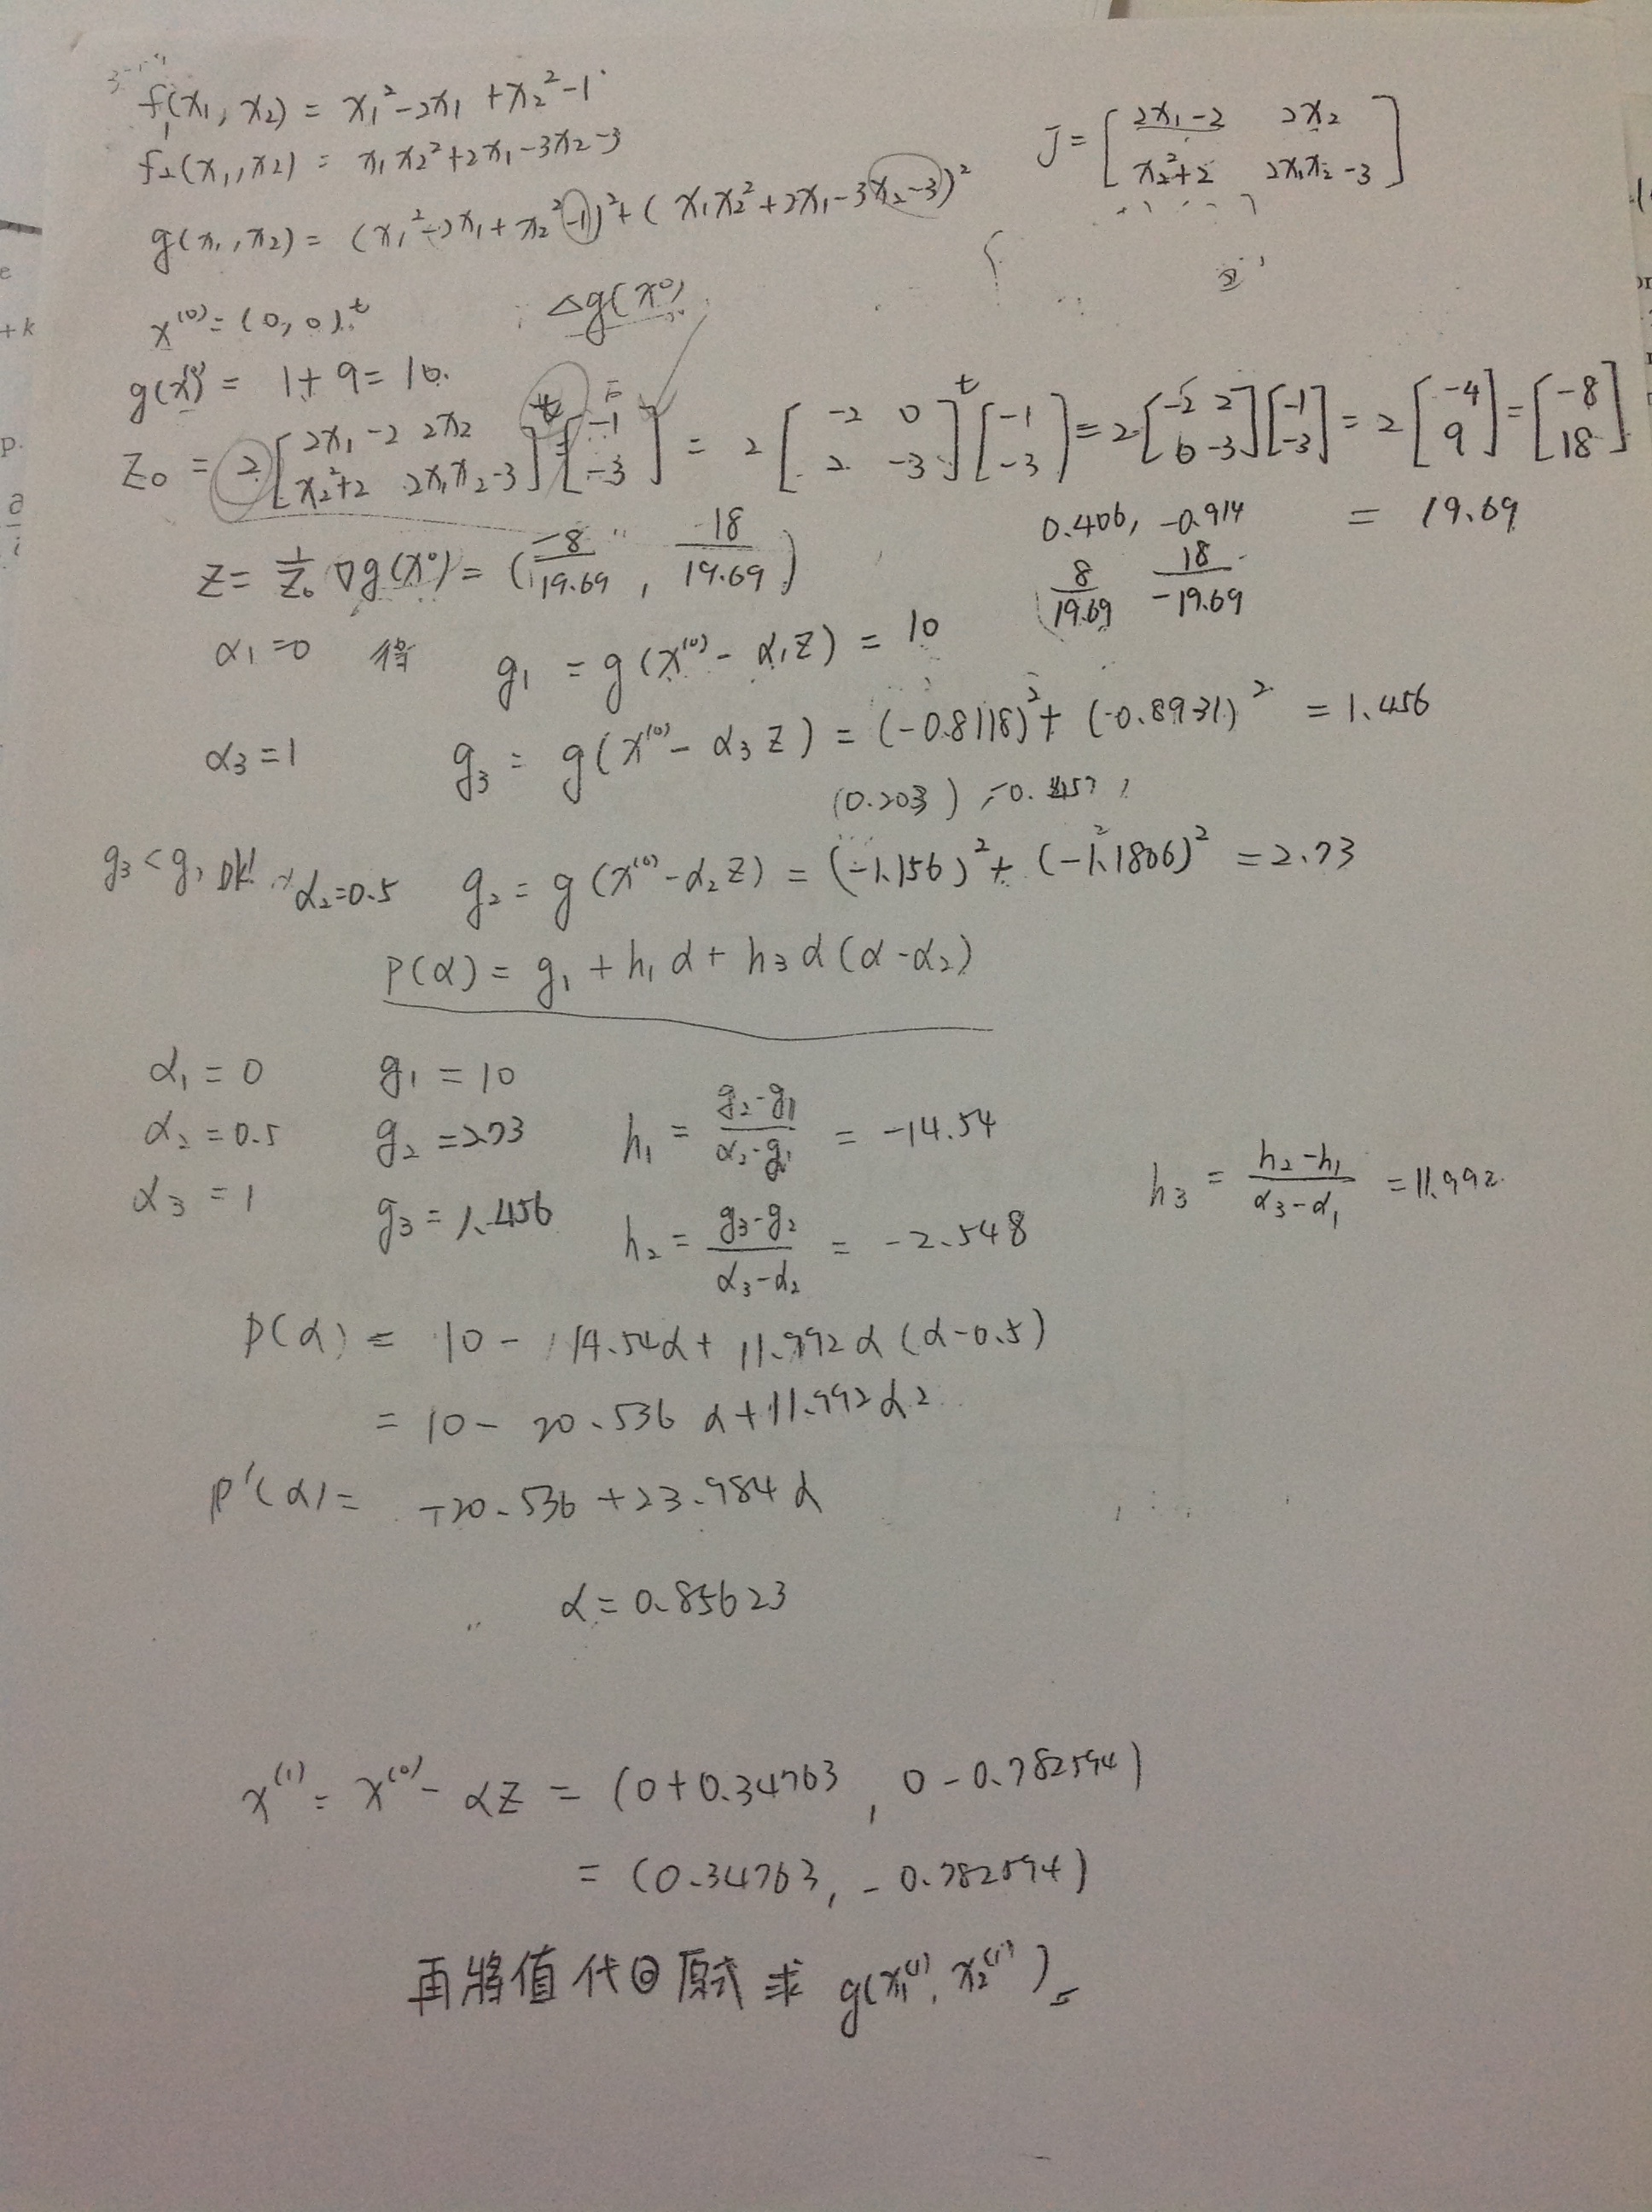 f₁(x₁, x₂) = x₁² -2x₁ +x₂² -1
f₂(x₁, x₂) = x₁x₂²+2x₁-3x₂-3
J = [ 2x₁-2 2x₂
x₂²+2 2x₁x₂-3 ]
g(x₁, x₂) = (x₁²-2x₁+x₂²-1)²+( x₁x₂²+2x₁-3x₂-3)²
x⁽⁰⁾ = (0, 0)ᵗ
△g(x⁰)
g(x⁽⁰⁾) = 1+9=10.
=
Z₀ = 2 [ 2x₁-2 2x₂ ]ᵗ [ -1 ] = 2 [ -2 0 ]ᵗ [ -1 ] = 2 [ -2 2 ] [ -1 ] = 2 [ -4 ] = [ -8 ]
[ x₂²+2 2x₁x₂-3 ] [ -3 ] [ 2 -3 ] [ -3 ] [ 0 -3 ] [ -3 ] [ 9 ] [ 18 ]
0.406, -0.914 = 19.69
Z = 1/Z₀ ∇g(x⁰) = ( -8/19.69 , 18/19.69 )
8/19.69 18/-19.69
α₁=0 得 g₁ = g(x⁽⁰⁾- α₁Z) = 10
α₃=1 g₃ = g(x⁽⁰⁾- α₃Z) = (-0.8118)²+ (-0.8931)² = 1.456
(0.203) -0.457
g₃<g₁ OK! α₂=0.5 g₂ = g(x⁽⁰⁾-α₂Z) = (-1.156)²+ (-1.1806)² = 2.73
P(α) = g₁ + h₁α + h₃α(α-α₂)
α₁ = 0 g₁ = 10
α₂ = 0.5 g₂ = 2.73 h₁ = g₂-g₁/α₂-g₁ = -14.54
α₃ = 1 g₃ = 1.456 h₂ = g₃-g₂/α₃-α₂ = -2.548
h₃ = h₂-h₁/α₃-α₁ = 11.992
P(α) = 10 - 14.54α+ 11.992α(α-0.5)
= 10 - 20.536α+11.992α²
P'(α) = -20.536+23.984α
α = 0.85623
x⁽¹⁾ = x⁽⁰⁾- αZ = (0+0.34763, 0-0.782594)
= (0.34763, -0.782594)
再將值代回原式求 g(x₁⁽¹⁾, x₂⁽¹⁾)